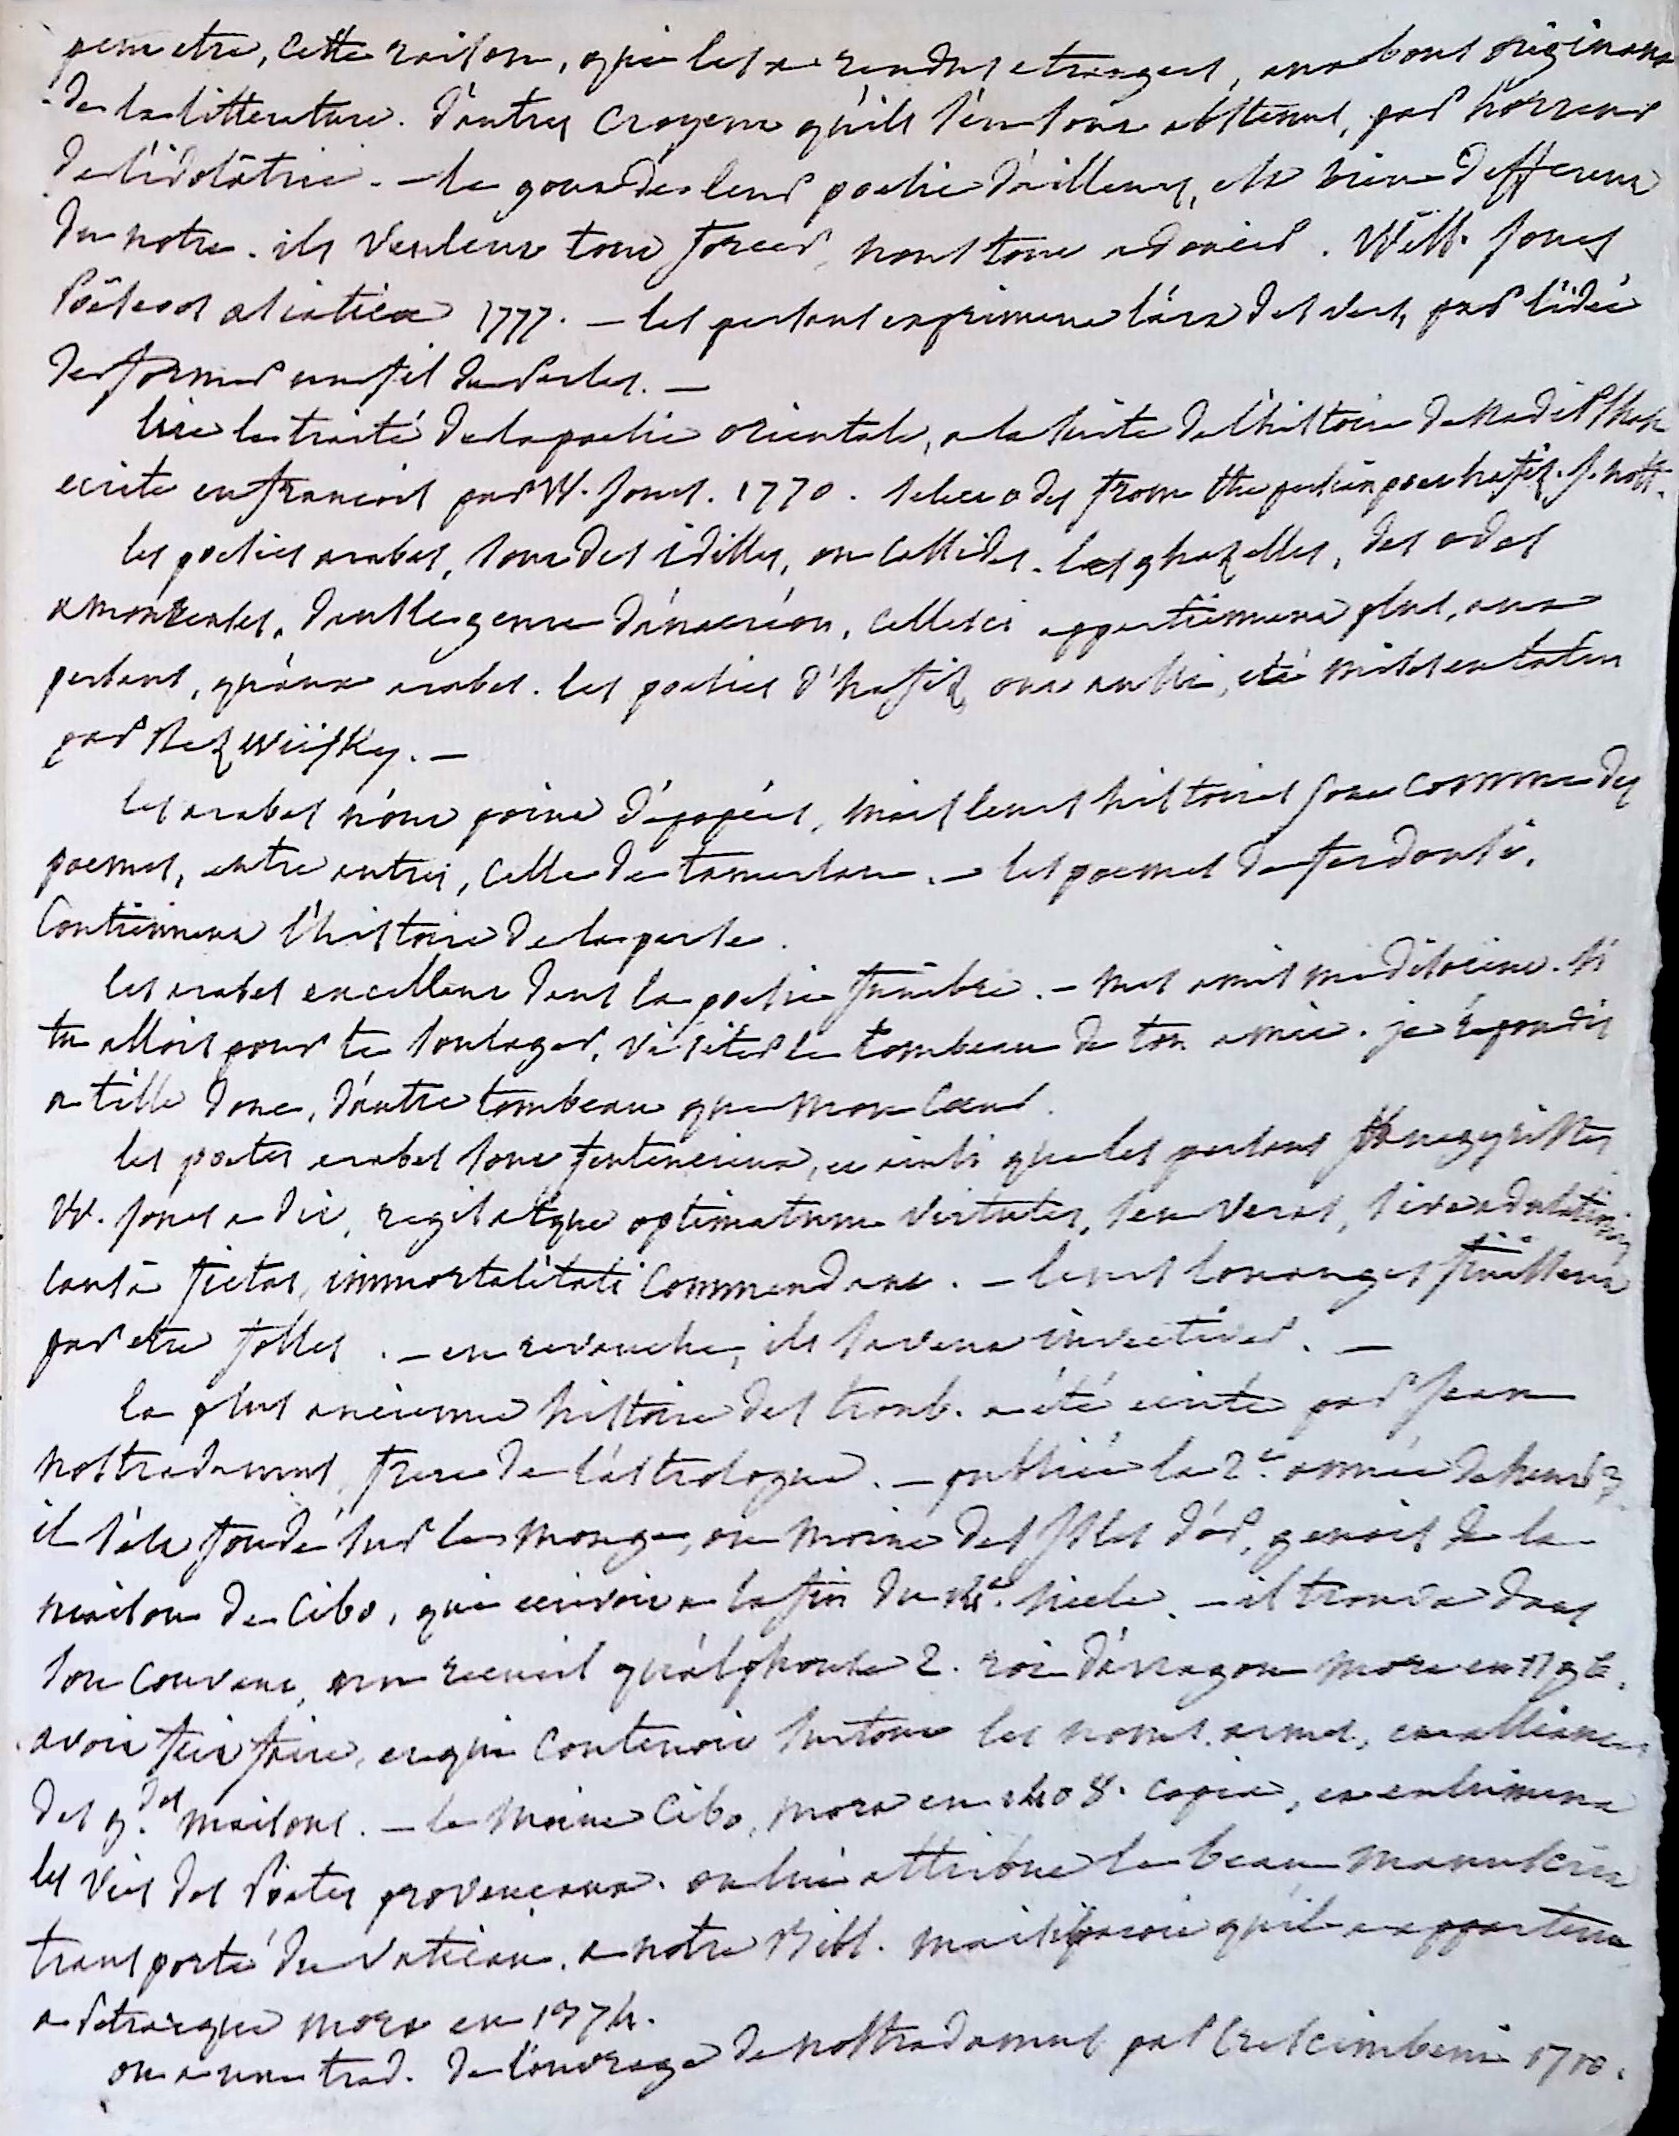 peut etre, cette raison, qui les a rendus etrangers, aux bons originaux
de la litterature. d'autres croyent qu'ils s'en sont abstenus, par horreur
de l'idolâtrie. – le gout de leur poesie d'ailleurs, est bien different
du notre. ils veulent tout forcer, nous tout adoucir. Will. Jones
Poëseos asiaticæ 1777. – les persans expriment l'art des vers, par l'idée
de former un fil de Perles. –
lire le traité de la poesie orientale, a la suite de l'histoire de Nadir Shah
ecrite en francois par W. Jones. 1770. select odes from the persian poet hafiz. J. nott.
les poesies arabes, sont des idilles, ou cassides. les ghazelles, des odes
amoureuses, dans le genre d'anacréon, celles ci appartiennent plus, aux
persans, qu'aux arabes. les poesies d'hafiz, ont aussi, été mises en latin
par Rezwiisky. –
les arabes n'ont point d'épopées, mais leurs histoires sont comme des
poemes, entre autres, celle de tamerlan. – les poemes de ferdousi,
contiennent l'histoire de la perse.
les arabes excellent dans la poesie funèbre. – mes amis me disoient. si
tu allois pour te soulager, visiter le tombeau de ton amie. je répondis
a t'elle donc, d'autre tombeau que mon coeur.
les poetes arabes sont sentencieux, et ainsi que les persans panegyristes
W. Jones a dit, regis atque optimatum virtutes, seu veras, sive adulationis
causâ fictas, immortalitati commendant. – leurs louanges finissent
par etre folles. – en revanche, ils savent invectiver. –
la plus ancienne histoire des troub. a été ecrite par Jean
nostradamus, frere de l'astrologue. – publiée la 2e. année de henri 3.
il s'est fondé sur le monge, ou moine des Isles d'or, genois de la
maison de Cibo, qui ecrivoit a la fin du 14e. siecle. – il trouva dans
son couvent, un recueil qu'alphonse 2. roi d'arragon mort en 1196.
avoit fait faire, et qui contenoit surtout les noms. armes, et alliances
des g.des maisons. – le moine Cibo, mort en 1408. copia, et enlumina
les vies des Poetes provencaux. on lui attribue le beau manuscrit
transporté du vatican, a notre Bibl. mais il paroit qu'il a appartenu
a Petrarque mort en 1374.
on a une trad. de l'ouvrage de nostradamus par Crescimbeni 1710.